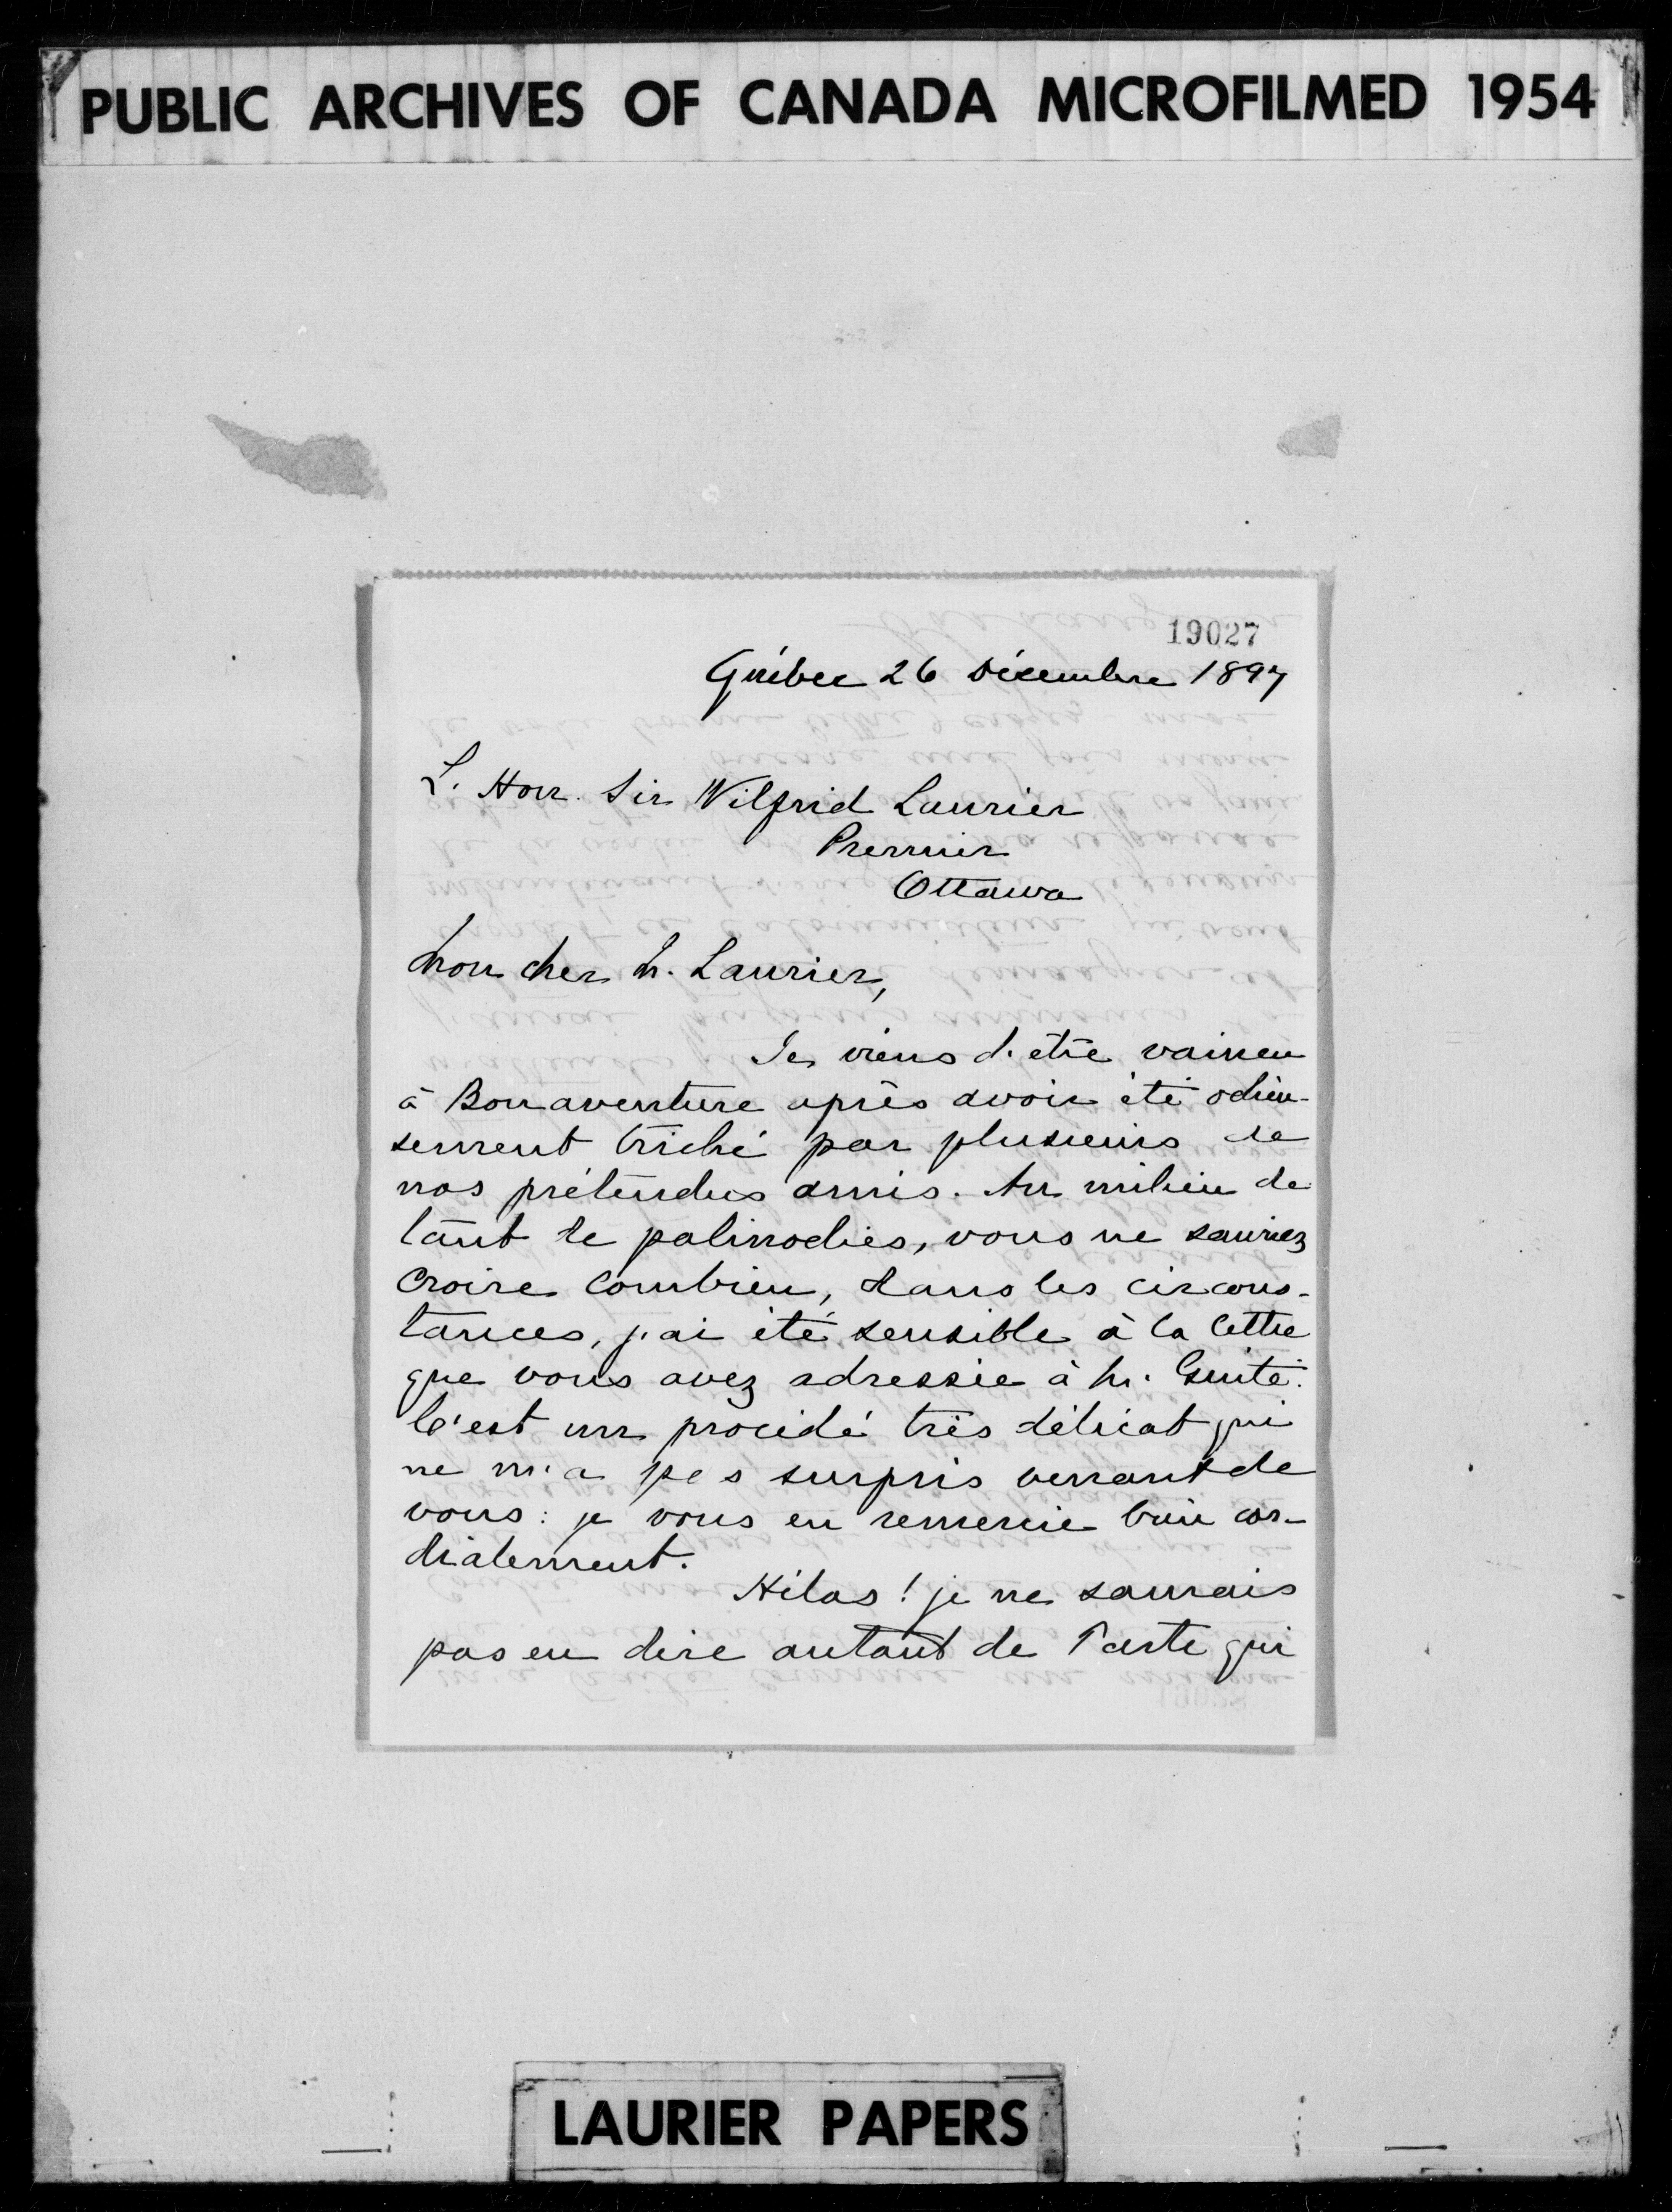 PUBLIC ARCHIVES OF CANADA MICROFILMED 1954
19027
Québec 26 Décembre 1897
L. Hon. Sir Wilfrid Laurier
Premier
Ottawa
Mon cher M. Laurier,
Je viens d'être vaincu
à Bonaventure après avoir été odieu-
sement triché par plusieurs de
nos prétendus amis. Au milieu de
tant de palinodies, vous ne sauriez
croire combien, dans les circons-
tances, j'ai été sensible à la lettre
que vous avez adressée à M. Guité.
C'est un procédé très délicat qui
ne m'a pas surpris venant de
vous: je vous en remercie bien cor-
dialement.
Hélas! je ne saurais
pas en dire autant de Tarte qui
LAURIER PAPERS